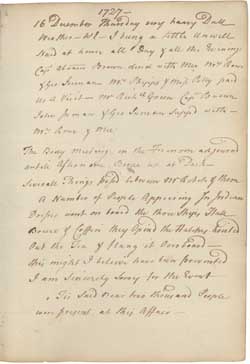 1727 —
16 December Thursday very heavy Dull
Weather — I being a little Unwell
Staid at home all Day & all the Evening.
Capt Brown dined with Mrs Rowe
& Geo Inman Mr & Miss Polly paid
Us a Visit — Mr Green Capt Brown
John Inman & Geo Inman Supd with —
Mrs Rowe & Me,
The Body Meeting in the Forenoon adjourned
untill Afternoon Broke up at Dark —
Severall Things passd between Mr Rotch & them
A Number of People Appearing In Indian
Dresses went on board the three Ships Hall
Bruce & Coffin they Opend the Hatches hoisted
Out the Tea & flung it Overboard —
this might I believe have been prevented
I am Sincerely Sorry for the Event
Tis Said near two thousand People
were present at this Affair —